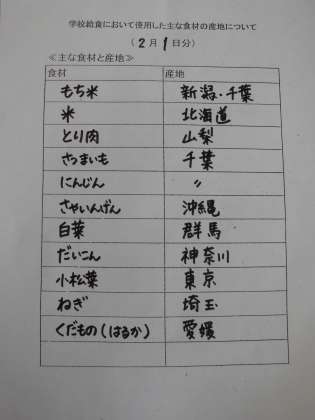 学校給食において使用した主な食材の産地について
(2月1日分)
≪主な食材と産地≫
食材 産地
もち米 新潟・千葉
米 北海道
とり肉 山梨
さつまいも 千葉
にんじん 〃
さやいんげん 沖縄
白菜 群馬
だいこん 神奈川
小松菜 東京
ねぎ 埼玉
くだもの(はるか) 愛媛